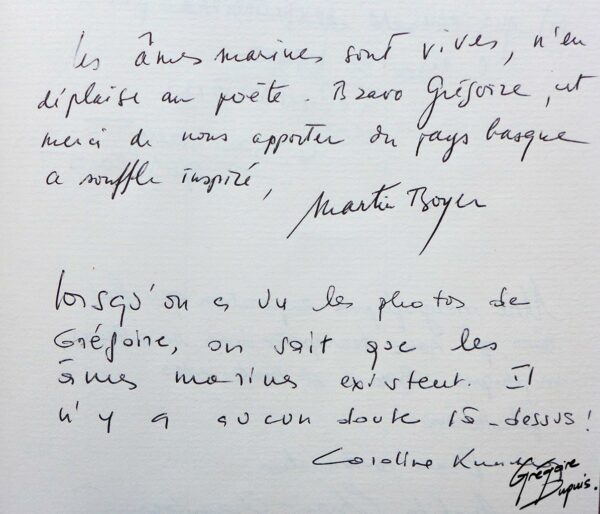 les âmes marines sont vives, n'en
déplaise au poète. Bravo Grégoire, et
merci de nous apporter du pays basque
ce souffle inspiré,
Martin Boyer
Lorsqu'on a vu les photos de
Grégoire, on sait que les
âmes marines existent. Il
n'y a aucun doute là-dessus !
Caroline
Grégoire
Dupuis.